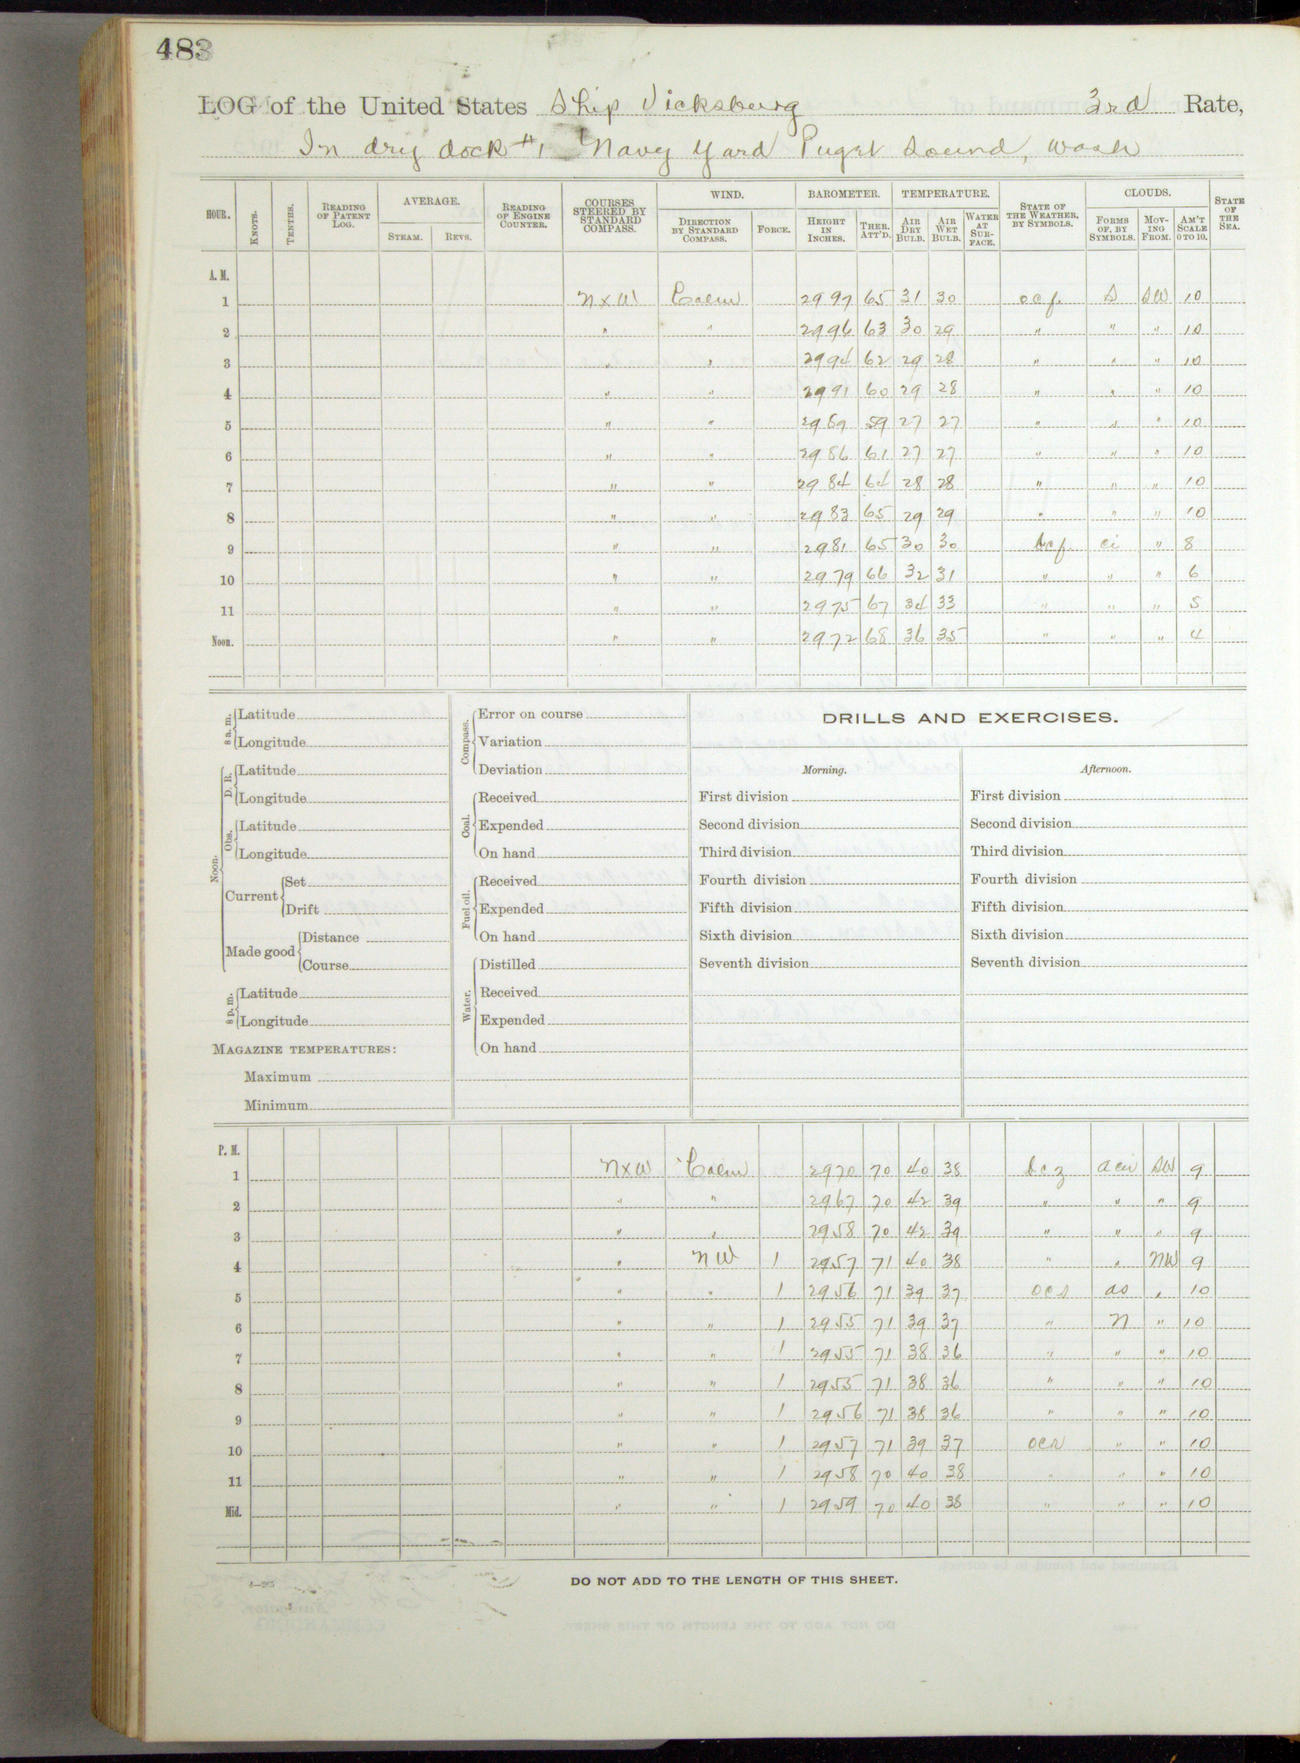 483
LOG of the United States Ship Vicksburg 3rd Rate,
In dry dock #1 Navy Yard Puget Sound, Wash
HOUR. KNOTS. TENTHS. READING OF PATENT LOG. AVERAGE. STEAM. REVS. READING OF ENGINE COUNTER. COURSES STEERED BY STANDARD COMPASS. WIND. DIRECTION BY STANDARD COMPASS. FORCE. BAROMETER. HEIGHT IN INCHES. THER. ATT'D. TEMPERATURE. AIR DRY BULB. AIR WET BULB. WATER AT SURFACE. STATE OF THE WEATHER, BY SYMBOLS. CLOUDS. FORMS OF, BY SYMBOLS. MOVING FROM. AM'T SCALE 0 TO 10. STATE OF THE SEA.
A. M.
1 NxW Calm 2997 65 31 30 ocf S SW 10
2 " " 2996 63 30 29 " " " 10
3 " " 2994 62 29 28 " " " 10
4 " " 2991 60 29 28 " " " 10
5 " " 2989 59 27 27 " " " 10
6 " " 2986 61 27 27 " " " 10
7 " " 2984 64 28 28 " " " 10
8 " " 2983 65 29 29 " " " 10
9 " " 2981 65 30 30 bcf ci " 8
10 " " 2979 66 32 31 " " " 6
11 " " 2975 67 34 33 " " " 5
Noon. " " 2972 68 36 35 " " " 4
8 a. m. Latitude
Longitude
Noon. D. R. Latitude
Longitude
Obs. Latitude
Longitude
Current Set
Drift
Made good Distance
Course
8 p. m. Latitude
Longitude
MAGAZINE TEMPERATURES:
Maximum
Minimum
Compass. Error on course
Variation
Deviation
Coal. Received
Expended
On hand
Fuel oil. Received
Expended
On hand
Water. Distilled
Received
Expended
On hand
DRILLS AND EXERCISES.
Morning. Afternoon.
First division First division
Second division Second division
Third division Third division
Fourth division Fourth division
Fifth division Fifth division
Sixth division Sixth division
Seventh division Seventh division
P. M.
1 NxW Calm 2970 70 40 38 bcz acu SW 9
2 " " 2967 70 42 39 " " " 9
3 " " 2958 70 42 39 " " " 9
4 " NW 1 2957 71 40 38 " " NW 9
5 " " 1 2956 71 39 37 ocs as " 10
6 " " 1 2955 71 39 37 " N " 10
7 " " 1 2955 71 38 36 " " " 10
8 " " 1 2955 71 38 36 " " " 10
9 " " 1 2956 71 38 36 " " " 10
10 " " 1 2957 71 39 37 ocr " " 10
11 " " 1 2958 70 40 38 " " " 10
Mid. " " 1 2959 70 40 38 " " " 10
DO NOT ADD TO THE LENGTH OF THIS SHEET.